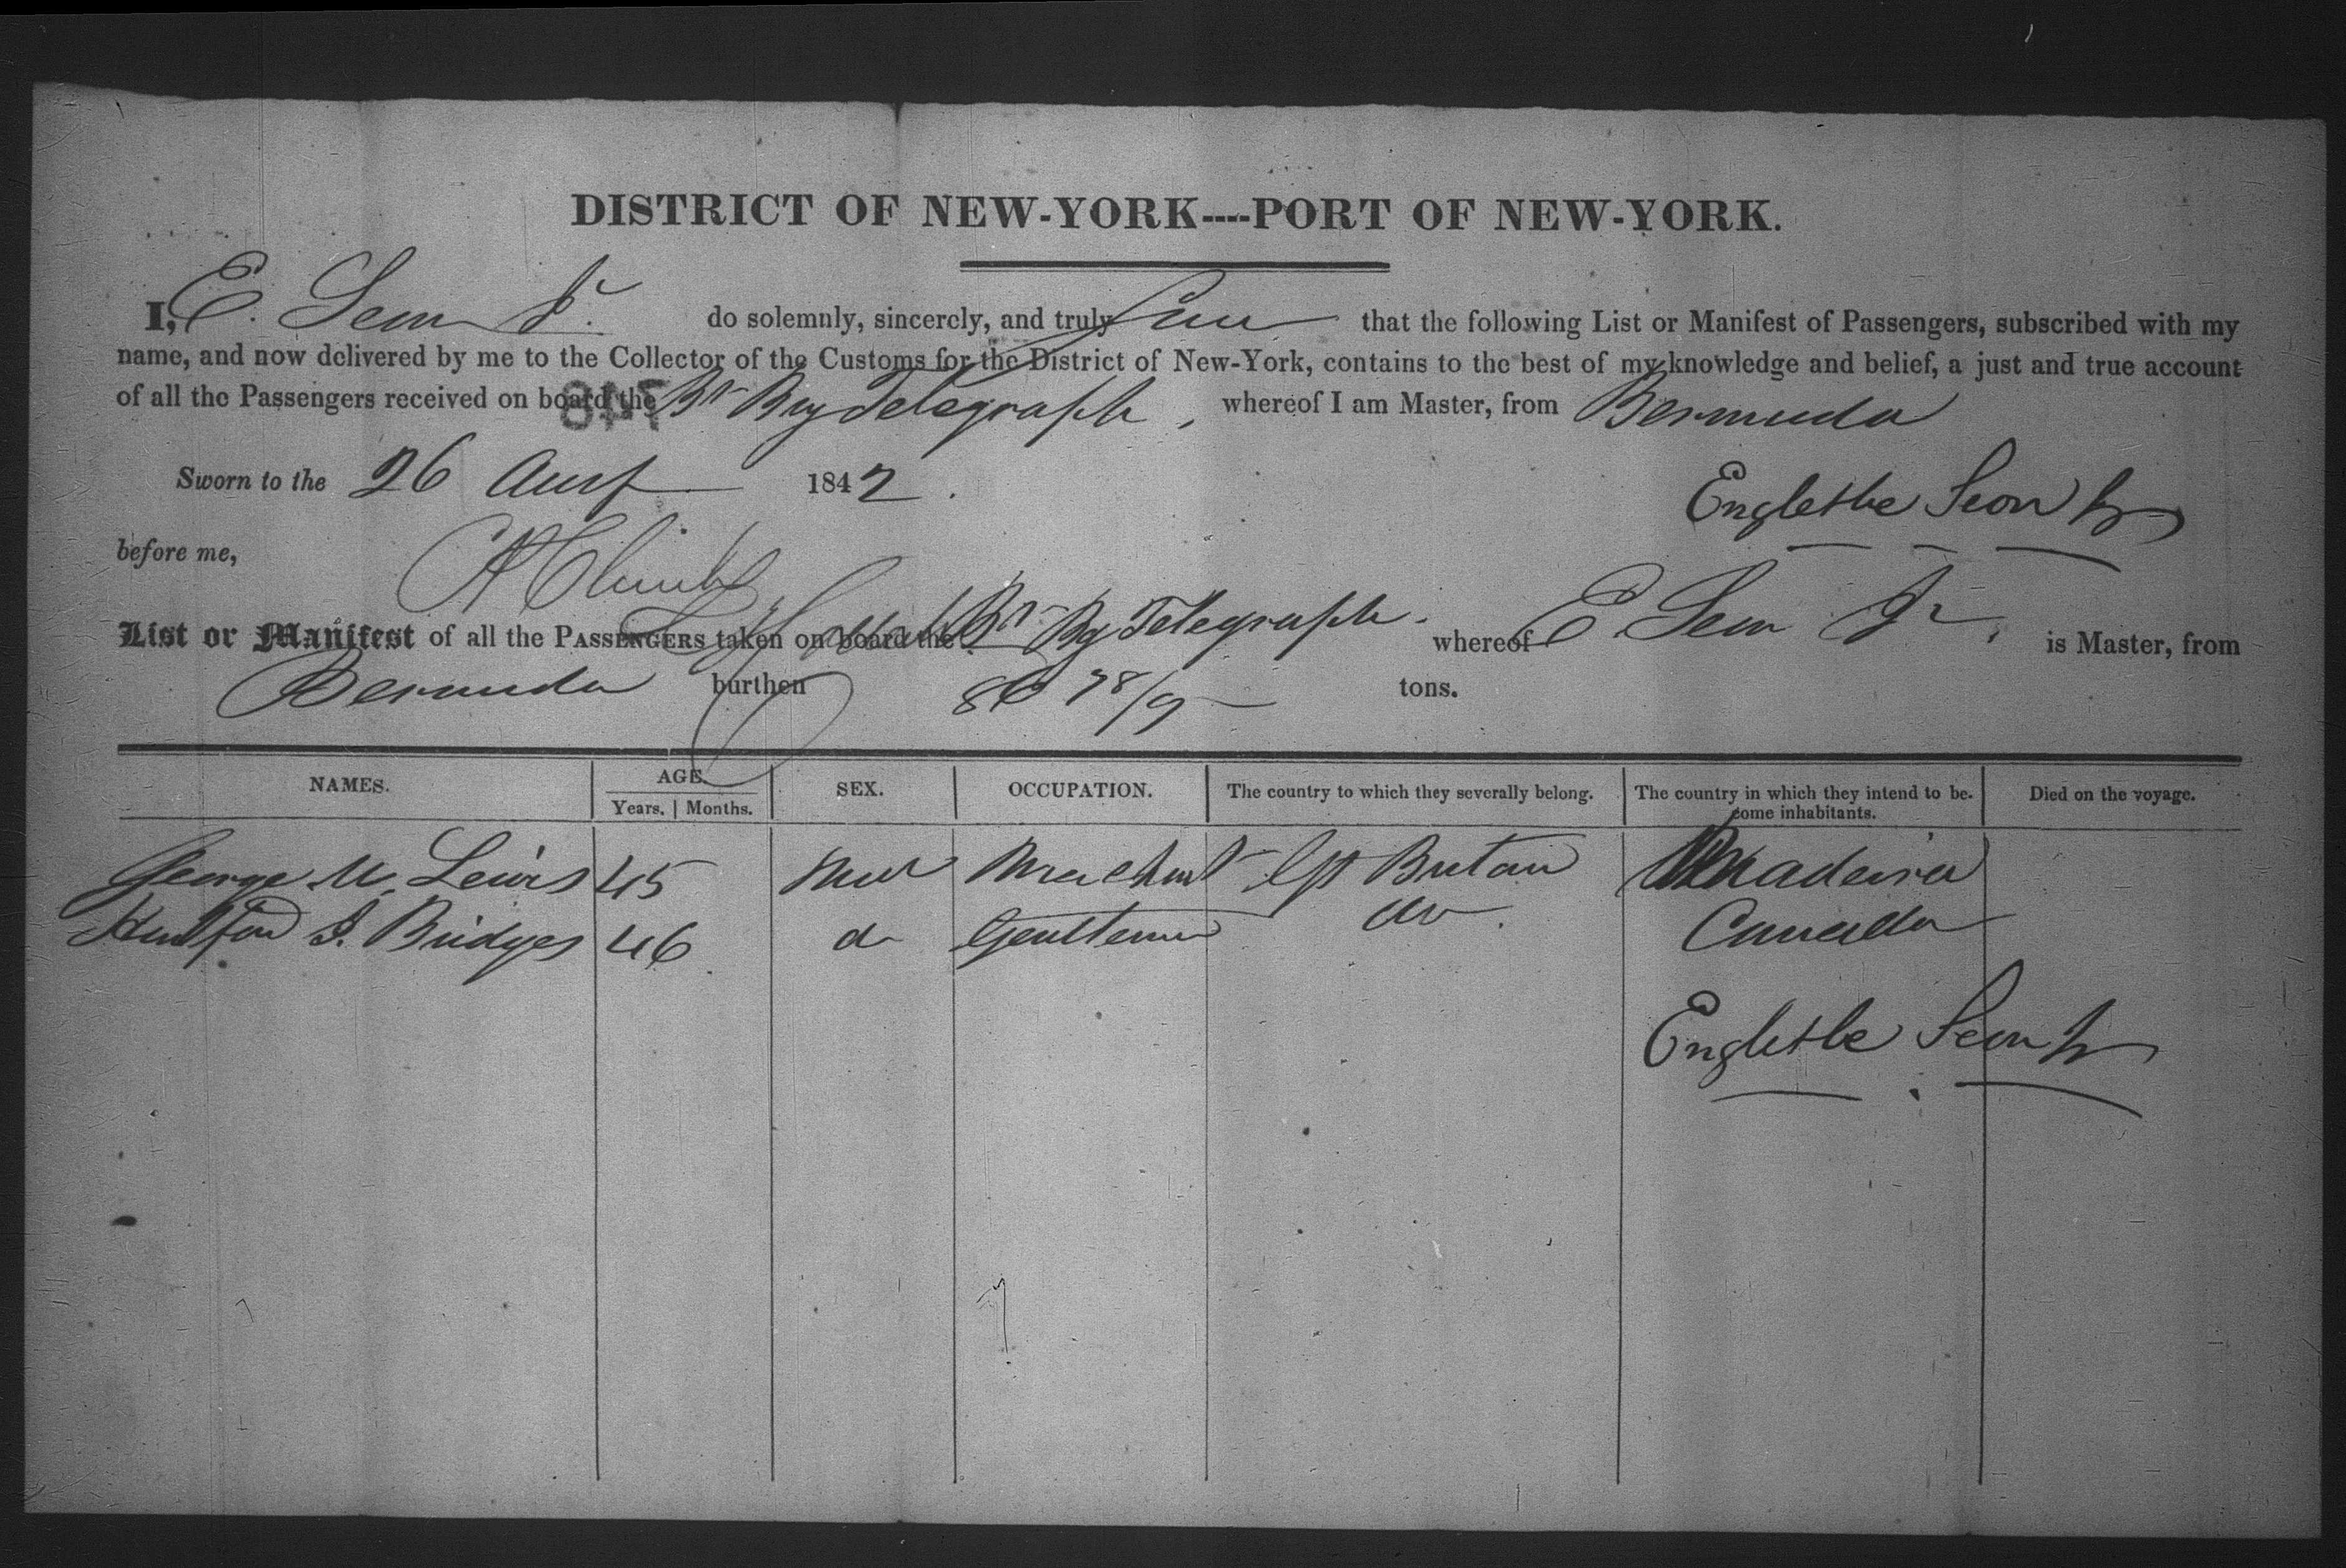 DISTRICT OF NEW-YORK----PORT OF NEW-YORK.
I, E. Seon Jr. do solemnly, sincerely, and truly that the following List or Manifest of Passengers, subscribed with my
name, and now delivered by me to the Collector of the Customs for the District of New-York, contains to the best of my knowledge and belief, a just and true account
of all the Passengers received on board the Br Brig Telegraph, whereof I am Master, from Bermuda
Sworn to the 26 Aust 1842.
Englesbe Seon Jr
before me,
List or Manifest of all the PASSENGERS taken on board the Br Bg Telegraph. whereof E Seon Jr, is Master, from
Bermuda burthen tons.
NAMES. AGE. SEX. OCCUPATION. The country to which they severally belong. The country in which they intend to be- Died on the voyage.
Years. Months. come inhabitants.
George M. Lewis 45 Male Merchant Gt Britain Madeira
J. Bridges 46 do Gentleman do. Canada
Englesbe Seon Jr